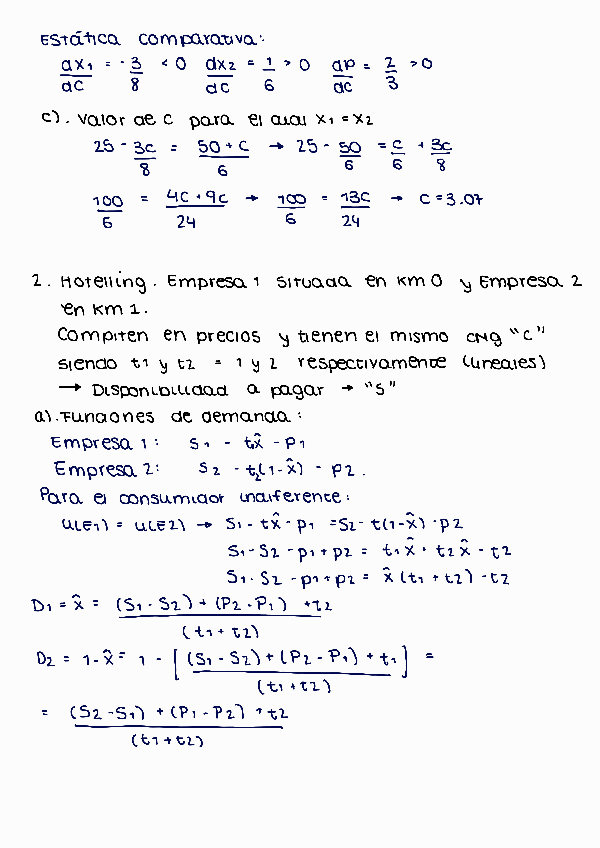 Estática comparativa:
dx1/dc = -3/8 < 0 dx2/dc = 1/6 > 0 dp/dc = 2/3 > 0
c). Valor de c para el cual x1 = x2
25 - 3c/8 = 50 + c/6 → 25 - 50/6 = c/6 + 3c/8
100/6 = 4c + 9c/24 → 100/6 = 13c/24 → c = 3.07
2. Hotelling. Empresa 1 situada en km 0 y Empresa 2
en km 1.
Compiten en precios y tienen el mismo CMg "c"
siendo t1 y t2 = 1 y 2 respectivamente (lineales)
→ Disponibilidad a pagar → "S"
a). Funciones de demanda:
Empresa 1: S1 - t1x̂ - p1
Empresa 2: S2 - t2(1-x̂) - p2.
Para el consumidor indiferente:
U(E1) = U(E2) → S1 - tx̂ - p1 = S2 - t(1-x̂) - p2
S1 - S2 - p1 + p2 = t1x̂ + t2x̂ - t2
S1 - S2 - p1 + p2 = x̂(t1 + t2) - t2
D1 = x̂ = (S1 - S2) + (P2 - P1) + t2/(t1 + t2)
D2 = 1 - x̂ = 1 - [(S1 - S2) + (P2 - P1) + t1/(t1 + t2)] =
= (S2 - S1) + (P1 - P2) + t2/(t1 + t2)